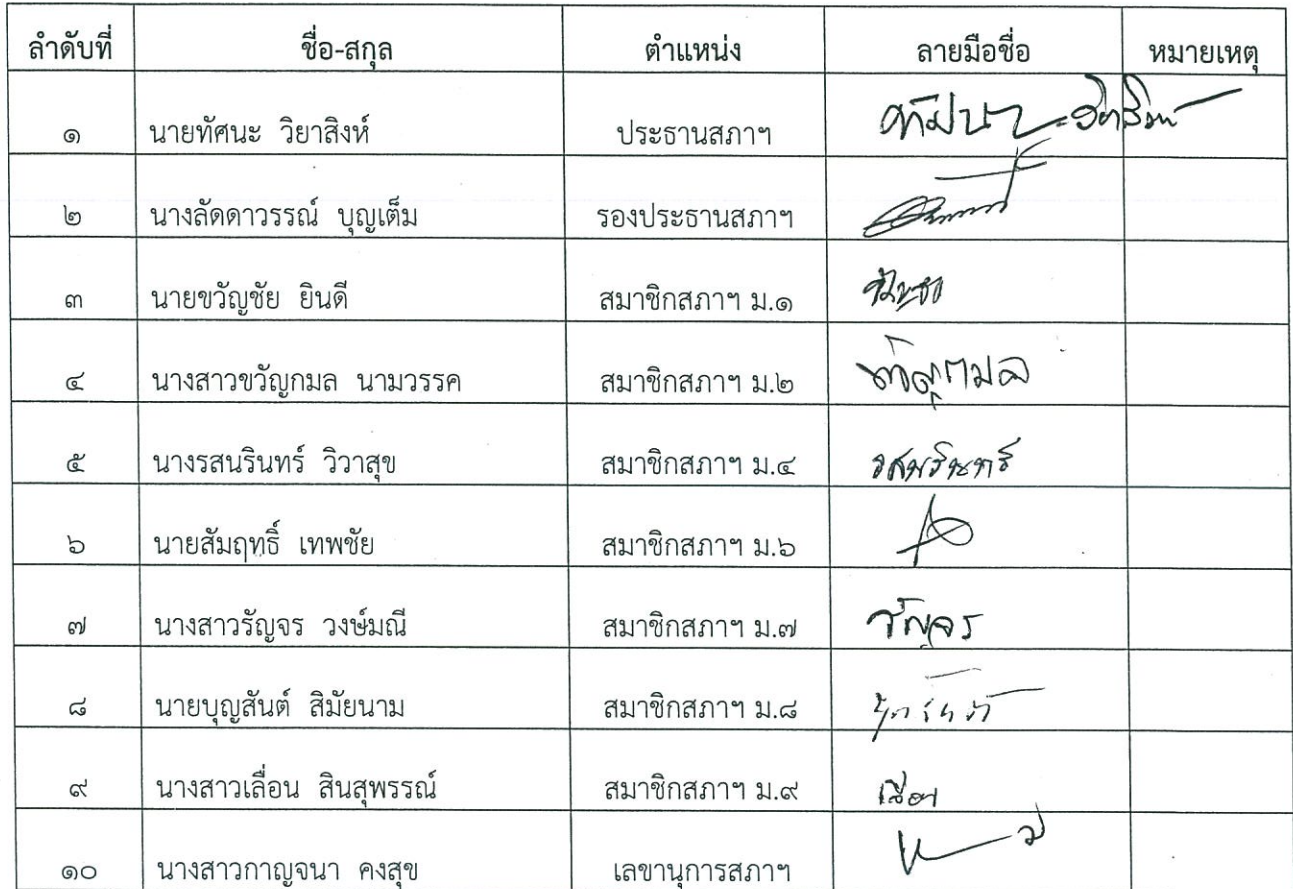 ลำดับที่ ชื่อ-สกุล ตำแหน่ง ลายมือชื่อ หมายเหตุ
๑ นายทัศนะ วิยาสิงห์ ประธานสภาฯ
๒ นางลัดดาวรรณ์ บุญเต็ม รองประธานสภาฯ
๓ นายขวัญชัย ยินดี สมาชิกสภาฯ ม.๑
๔ นางสาวขวัญกมล นามวรรค สมาชิกสภาฯ ม.๒
๕ นางรสนรินทร์ วิวาสุข สมาชิกสภาฯ ม.๔ รสนรินทร์
๖ นายสัมฤทธิ์ เทพชัย สมาชิกสภาฯ ม.๖
๗ นางสาวรัญจร วงษ์มณี สมาชิกสภาฯ ม.๗ รัญจร
๘ นายบุญสันต์ สิมัยนาม สมาชิกสภาฯ ม.๘
๙ นางสาวเลื่อน สินสุพรรณ์ สมาชิกสภาฯ ม.๙
๑๐ นางสาวกาญจนา คงสุข เลขานุการสภาฯ